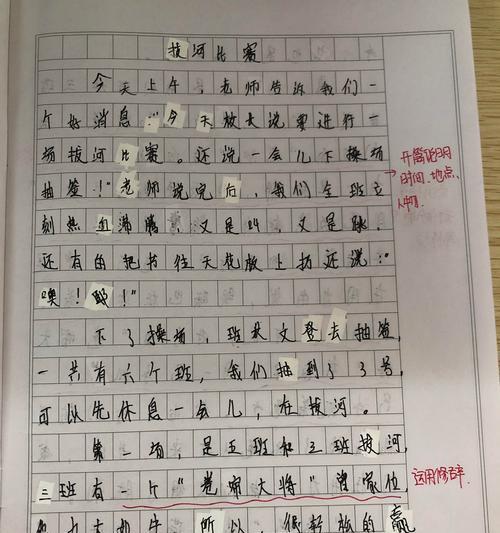 拔河比赛
今天上午，老师告诉我们一
个好消息："今天放大说要进行一
场拔河比赛。还说一会儿下操场
抽签！"老师说完后，我们全班立
刻热血沸腾，又是叫，又是跳，
还有的把书往天花板上扔还说："
噢！耶！"
下了操场，班长文登去抽签，
一共有六个班，我们抽到了3号，
可以先休息一会儿，在拔河。
第一场，是五班和三班拔河，
三班有一个"卷帘大将"曾家位，
力大如牛，所以，很轻松的赢
开篇说明
时间、地点、
人物。
运用修辞